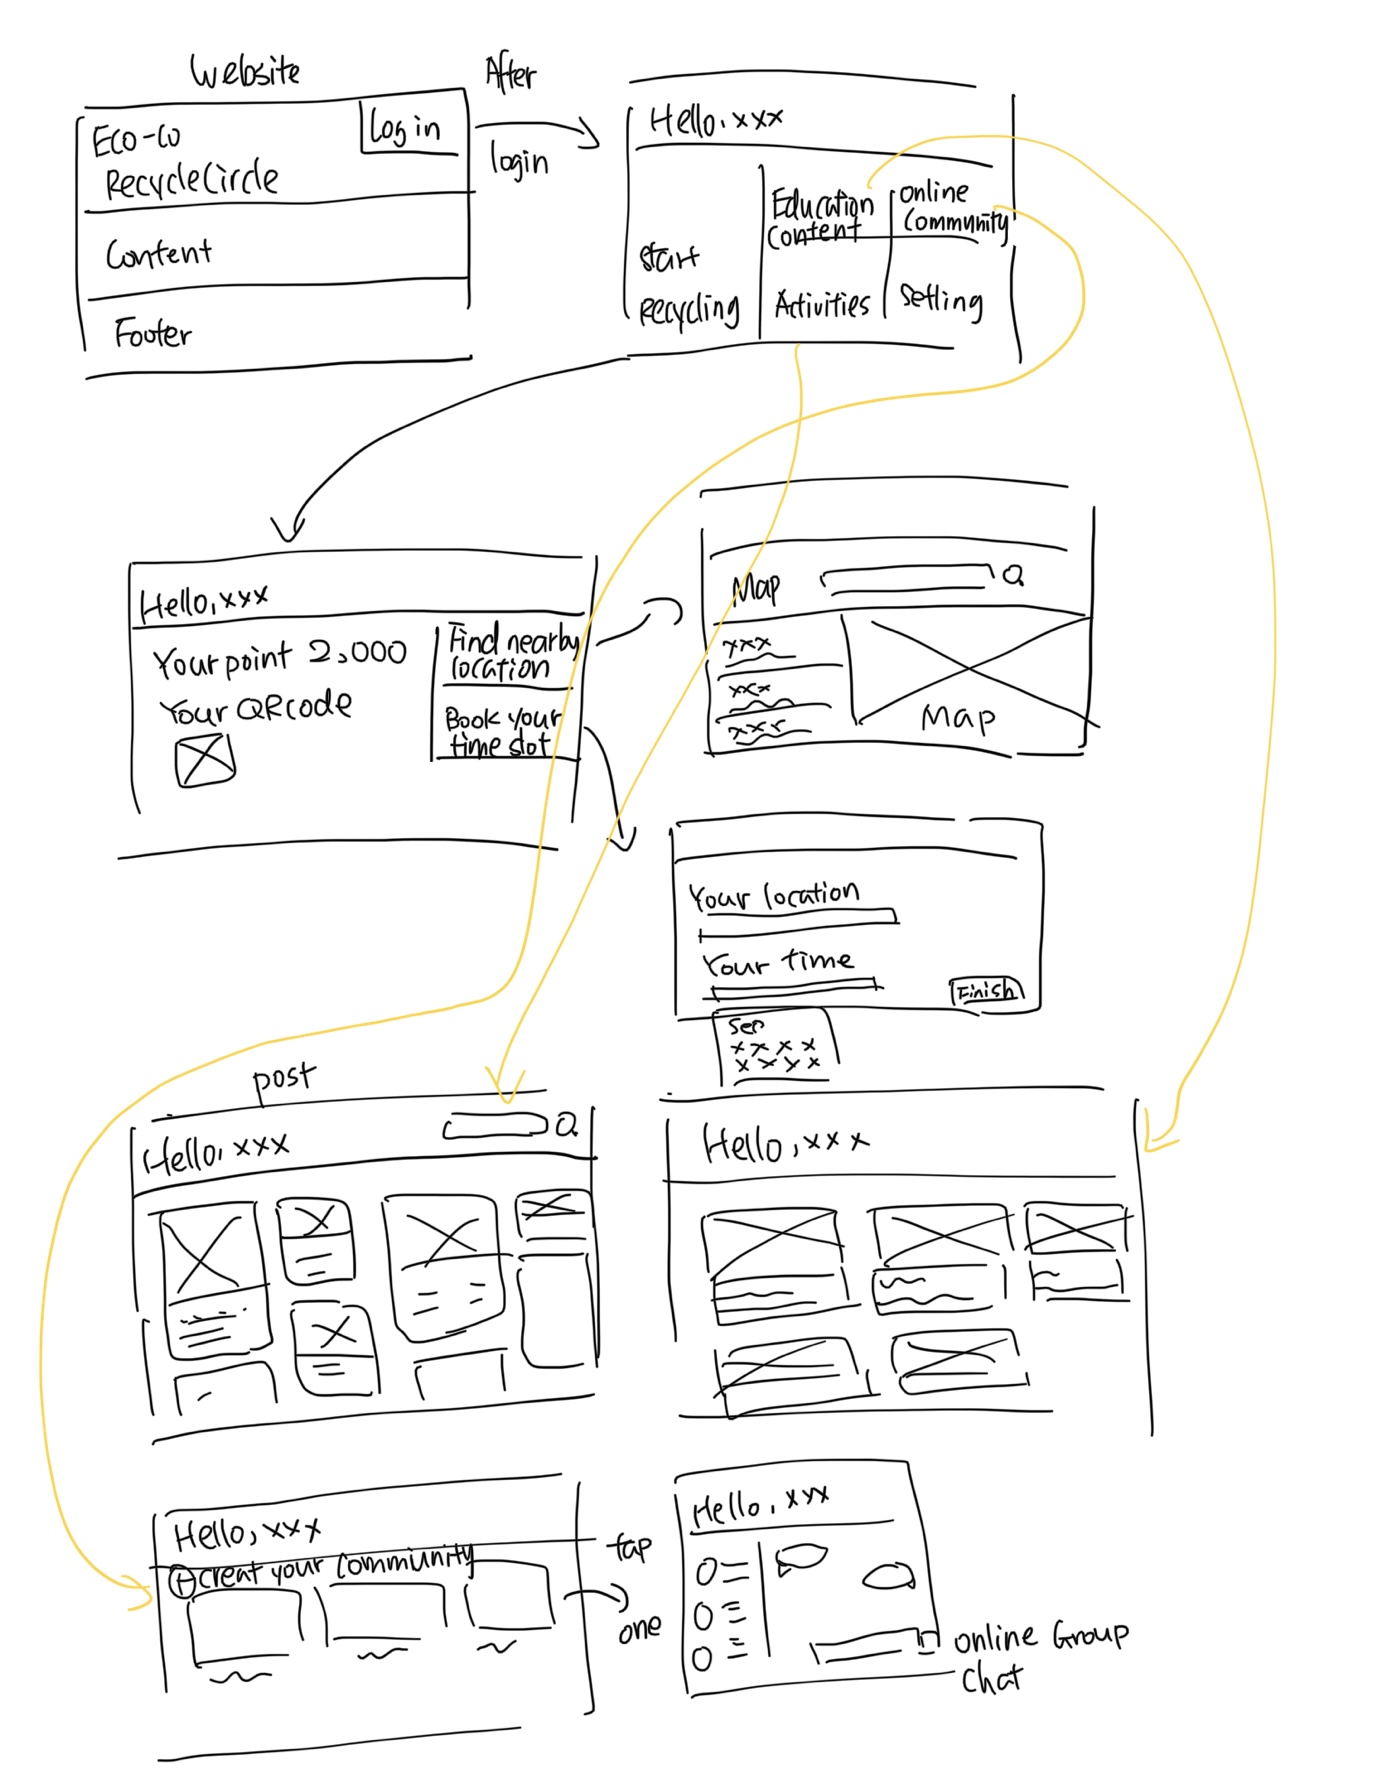 Website
Eco-co
RecycleCircle
Log in
Content
Footer
After
login
Hello, xxx
Start
Recycling
Education
Content
Online
Community
Activities
Setting
Hello, xxx
Your point 2,000
Your QR code
Find nearby
location
Book your
time slot
Map
xxx
xxx
xxx
Map
Your location
Your time
Finish
Sep
xxxx
xxxx
post
Hello, xxx
Hello, xxx
Hello, xxx
creat your community
tap
one
Hello, xxx
online Group
Chat